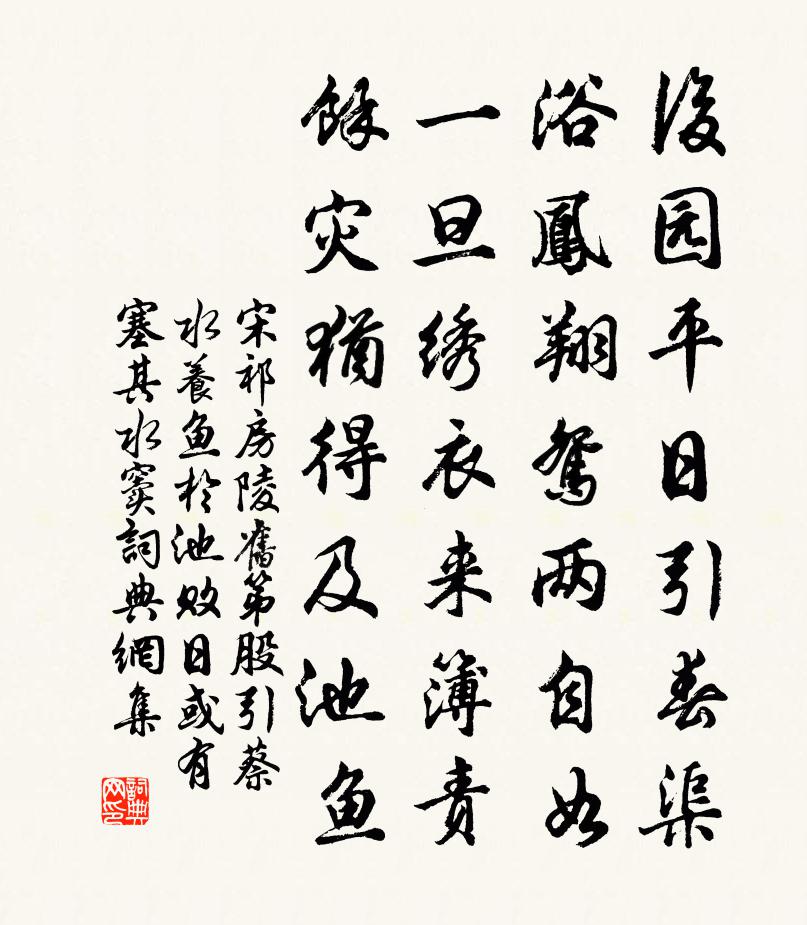 後园平日引春渠
浴鳳翔鴛两自如
一旦绣衣来簿责
餘灾猶得及池鱼
宋祁房陵舊第股引蔡
水養鱼於池败日或有
塞其水窦詞典網集
詞典网印